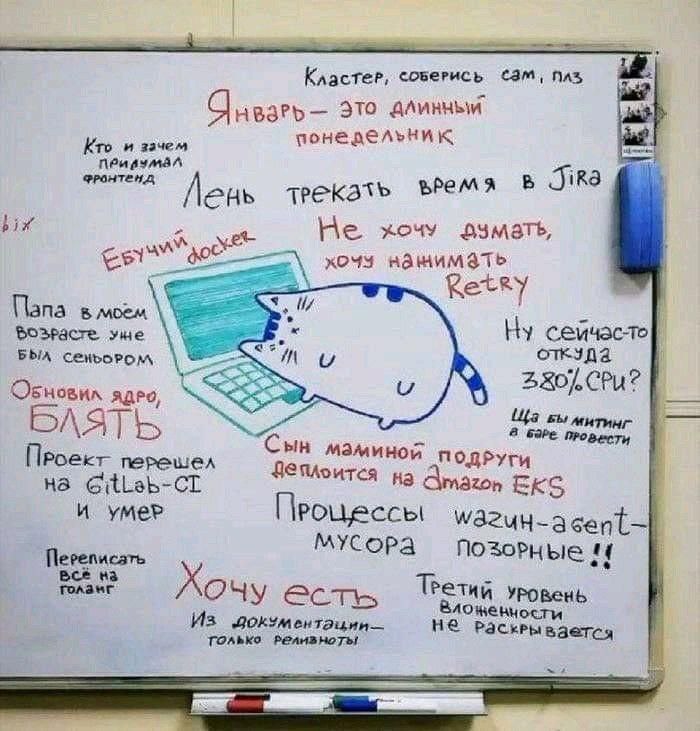 Кластер, соберись сам, плз
Январь – это длинный
понедельник
Кто и зачем
придумал
фронтенд
Лень трекать время в Jira
bix
Ебучий
docker
Не хочу думать,
хочу нажимать
Retry
Папа в моём
возрасте уже
был сеньором
Ну сейчас-то
откуда
380% CPU?
Обновил ядро,
БЛЯТЬ
Ща бы митинг
в баре провести
Сын маминой подруги
деплоится на Amazon EKS
Проект перешел
на GitLab-CI
и умер
Процессы wazuh-agent-
мусора позорные!!
Переписать
всё на
голанг
Хочу есть
Третий уровень
вложенности
не раскрывается
Из документации–
только релизноты